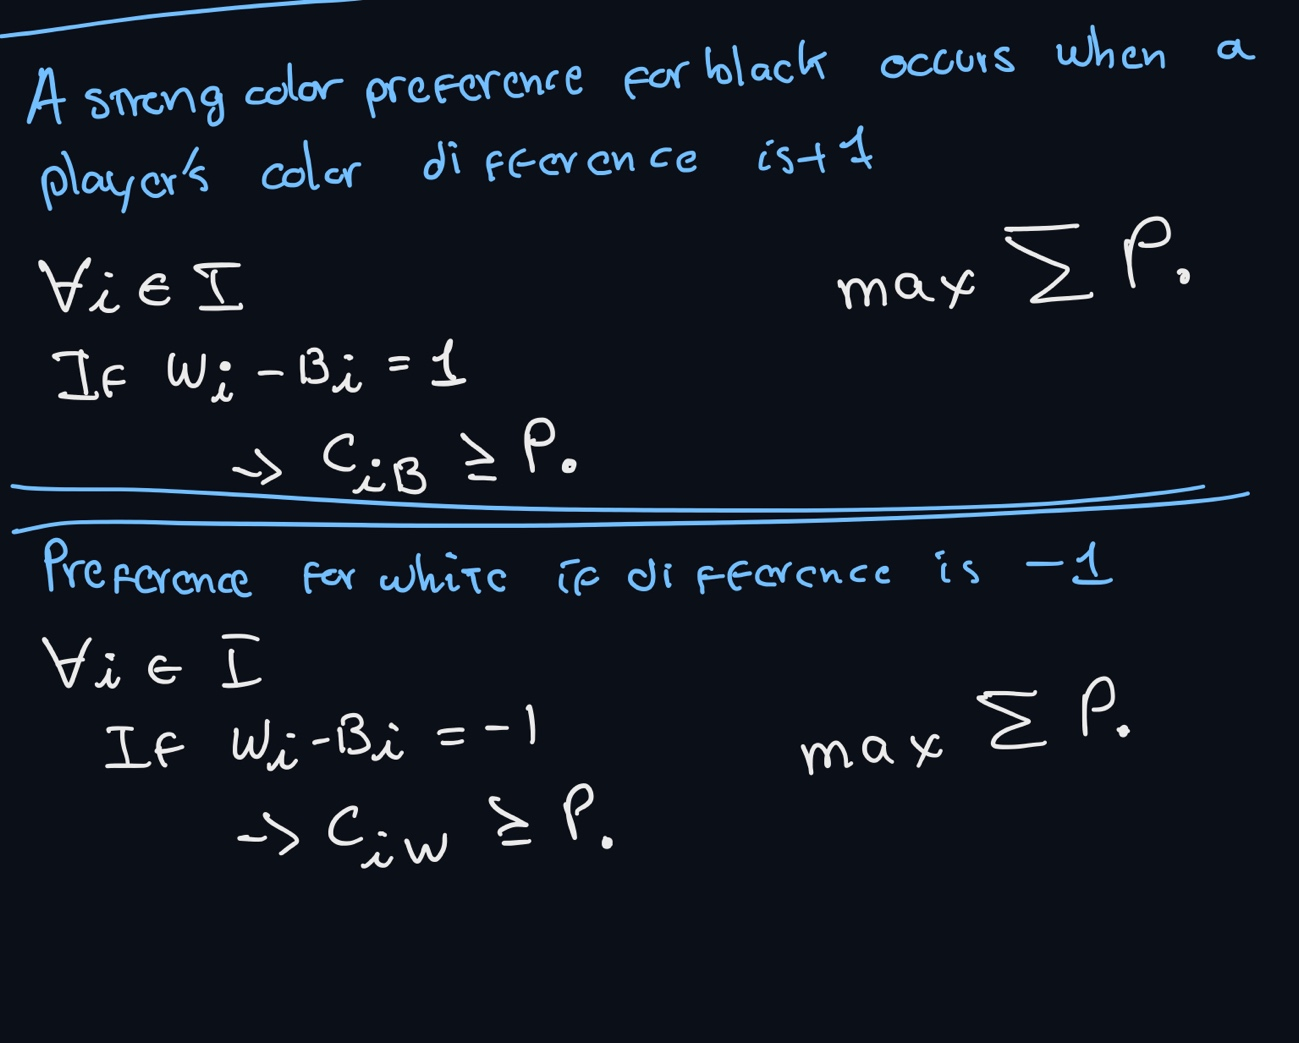 A strong color preference for black occurs when a
player's color difference is +1
∀i ∈ I
max ∑ P.
If Wi - Bi = 1
-> CiB ≥ P.
Preference for white if difference is -1
∀i ∈ I
If Wi - Bi = -1
max ∑ P.
-> CiW ≥ P.